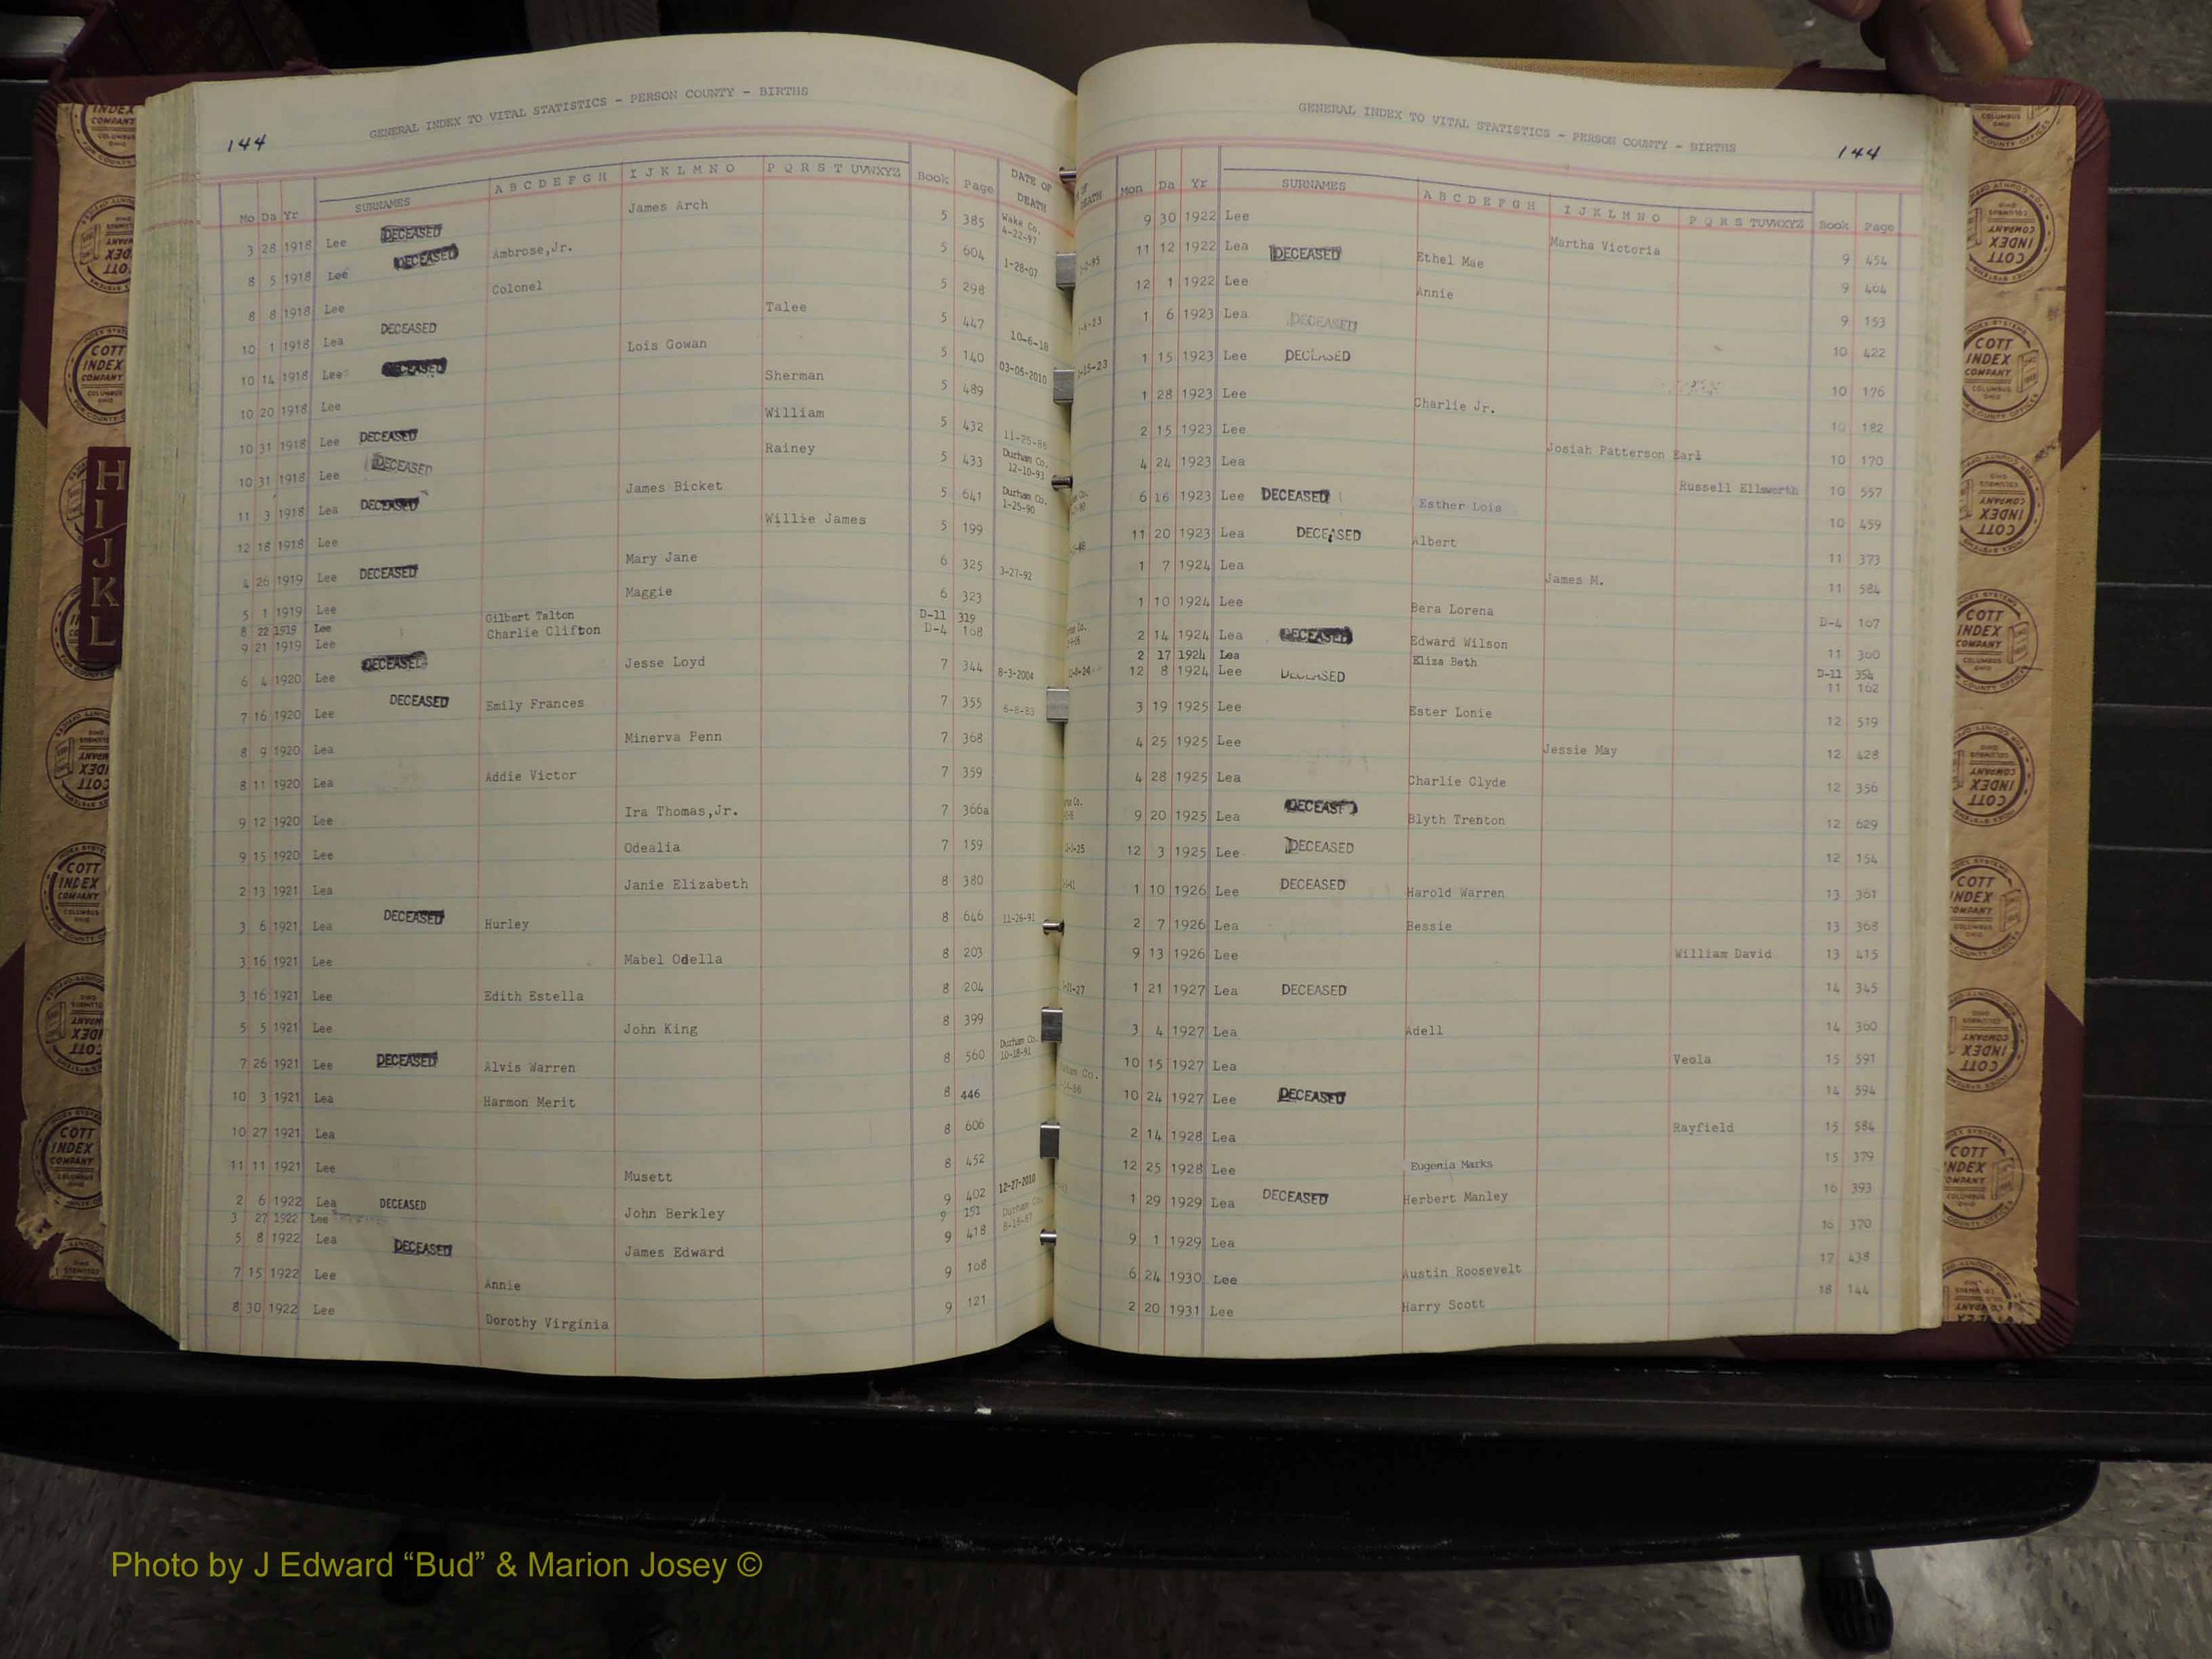 GENERAL INDEX TO VITAL STATISTICS - PERSON COUNTY - BIRTHS
144
Mo Da Yr SURNAMES A B C D E F G H I J K L M N O P Q R S T UVWXYZ Book Page DATE OF DEATH
3 28 1918 Lee DECEASED James Arch 5 385 Wake Co. 4-22-97
8 5 1918 Lee DECEASED Ambrose,Jr. 5 604 1-28-07
8 8 1918 Lee Colonel 5 298
10 1 1918 Lea DECEASED Talee 5 447 10-6-18
10 14 1918 Lee DECEASED Lois Gowan 5 140 03-05-2010
10 20 1918 Lee Sherman 5 489
10 31 1918 Lee DECEASED William 5 432 11-25-86
10 31 1918 Lee DECEASED Rainey 5 433 Durham Co. 12-10-93
11 3 1918 Lea DECEASED James Bicket 5 641 Durham Co. 1-25-90
12 18 1918 Lee Willie James 5 199
4 26 1919 Lee DECEASED Mary Jane 6 325 3-27-92
5 1 1919 Lee Maggie 6 323
8 22 1919 Lee Gilbert Talton D-11 319
9 21 1919 Lee Charlie Clifton D-4 168
6 4 1920 Lee DECEASED Jesse Loyd 7 344 8-3-2004
7 16 1920 Lee DECEASED Emily Frances 7 355 6-8-83
8 9 1920 Lea Minerva Penn 7 368
8 11 1920 Lea Addie Victor 7 359
9 12 1920 Lee Ira Thomas,Jr. 7 366a
9 15 1920 Lee Odealia 7 159
2 13 1921 Lea Janie Elizabeth 8 380
3 6 1921 Lea DECEASED Hurley 8 646 11-26-91
3 16 1921 Lee Mabel Odella 8 203
3 16 1921 Lee Edith Estella 8 204
5 5 1921 Lee John King 8 399
7 26 1921 Lee DECEASED Alvis Warren 8 560 Durham Co. 10-18-91
10 3 1921 Lea Harmon Merit 8 446
10 27 1921 Lea 8 606
11 11 1921 Lee Musett 8 452
2 6 1922 Lea DECEASED John Berkley 9 402 12-27-2010
3 27 1922 Lee 9 151
5 8 1922 Lea DECEASED James Edward 9 418 Durham Co. 8-18-87
7 15 1922 Lee Annie 9 108
8 30 1922 Lee Dorothy Virginia 9 121
GENERAL INDEX TO VITAL STATISTICS - PERSON COUNTY - BIRTHS
144
DEATH Mon Da Yr SURNAMES A B C D E F G H I J K L M N O P Q R S TUVWXYZ Book Page
9 30 1922 Lee Martha Victoria 9 454
11 12 1922 Lea DECEASED Ethel Mae 9 464
12 1 1922 Lee Annie 9 153
1 6 1923 Lea DECEASED 10 422
1 15 1923 Lee DECEASED 10 176
1 28 1923 Lee Charlie Jr. 10 182
2 15 1923 Lee Josiah Patterson Earl 10 170
4 24 1923 Lea Russell Ellsworth 10 557
6 16 1923 Lee DECEASED Esther Lois 10 459
11 20 1923 Lea DECEASED Albert 11 373
1 7 1924 Lea James M. 11 584
1 10 1924 Lee Bera Lorena D-4 167
2 14 1924 Lea DECEASED Edward Wilson 11 360
2 17 1924 Lea Eliza Beth D-11 354
12 8 1924 Lee DECEASED 11 162
3 19 1925 Lee Ester Lonie 12 519
4 25 1925 Lee Jessie May 12 428
4 28 1925 Lea Charlie Clyde 12 356
9 20 1925 Lea DECEASED Blyth Trenton 12 629
12 3 1925 Lee DECEASED 12 154
1 10 1926 Lee DECEASED Harold Warren 13 361
2 7 1926 Lea Bessie 13 368
9 13 1926 Lee William David 13 415
1 21 1927 Lea DECEASED 14 345
3 4 1927 Lea Adell 14 360
10 15 1927 Lea Veola 15 591
10 24 1927 Lee DECEASED 14 594
2 14 1928 Lea Rayfield 15 584
12 25 1928 Lee Eugenia Marks 15 379
1 29 1929 Lea DECEASED Herbert Manley 16 393
9 1 1929 Lea 16 370
6 24 1930 Lee Austin Roosevelt 17 438
2 20 1931 Lee Harry Scott 18 144
H
I
J
K
L
COTT
INDEX
COMPANY
COLUMBUS
OHIO
Photo by J Edward “Bud” & Marion Josey ©